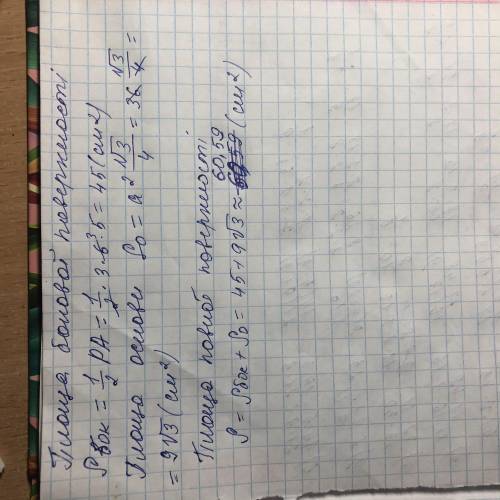 Площа бокової поверхності
Sбок = 1/2 PA = 1/2 · 3 · 6³ · 5 = 45 (см²)
Площа основи So = a² √3/4 = 36 √3/4 =
= 9√3 (см²)
Площа повної поверхності
S = Sбок + So = 45 + 9√3 ≈ 60,59 (см²)